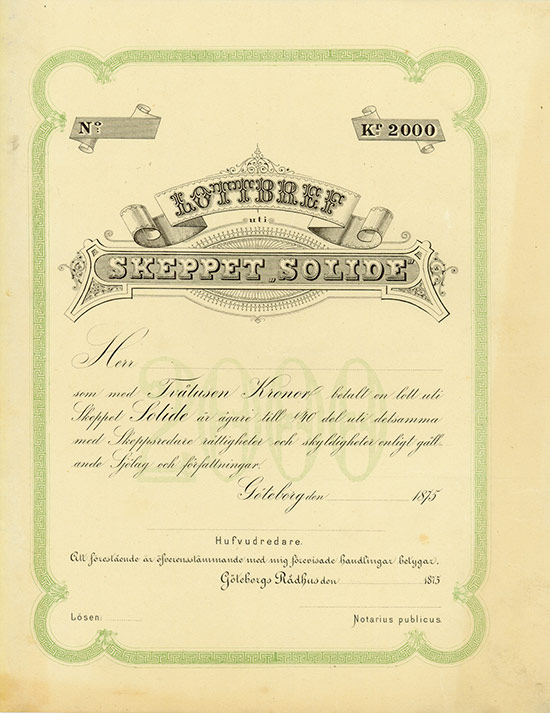 No:
Kr 2000
LOTTBREF
uti
SKEPPET „SOLIDE"
2000
Herr
som med Tvåtusen Kronor betalt en lott uti
Skeppet Solide är ägare till 1/40 del uti detsamma
med Skeppsredare rättigheter och skyldigheter enligt gäll-
ande Sjölag och författningar.
Göteborg den 1875
Hufvudredare.
Att förestående är öfverensstämmande med mig förevisade handlingar betygar.
Göteborgs Rådhus den 1875
Lösen:
Notarius publicus.